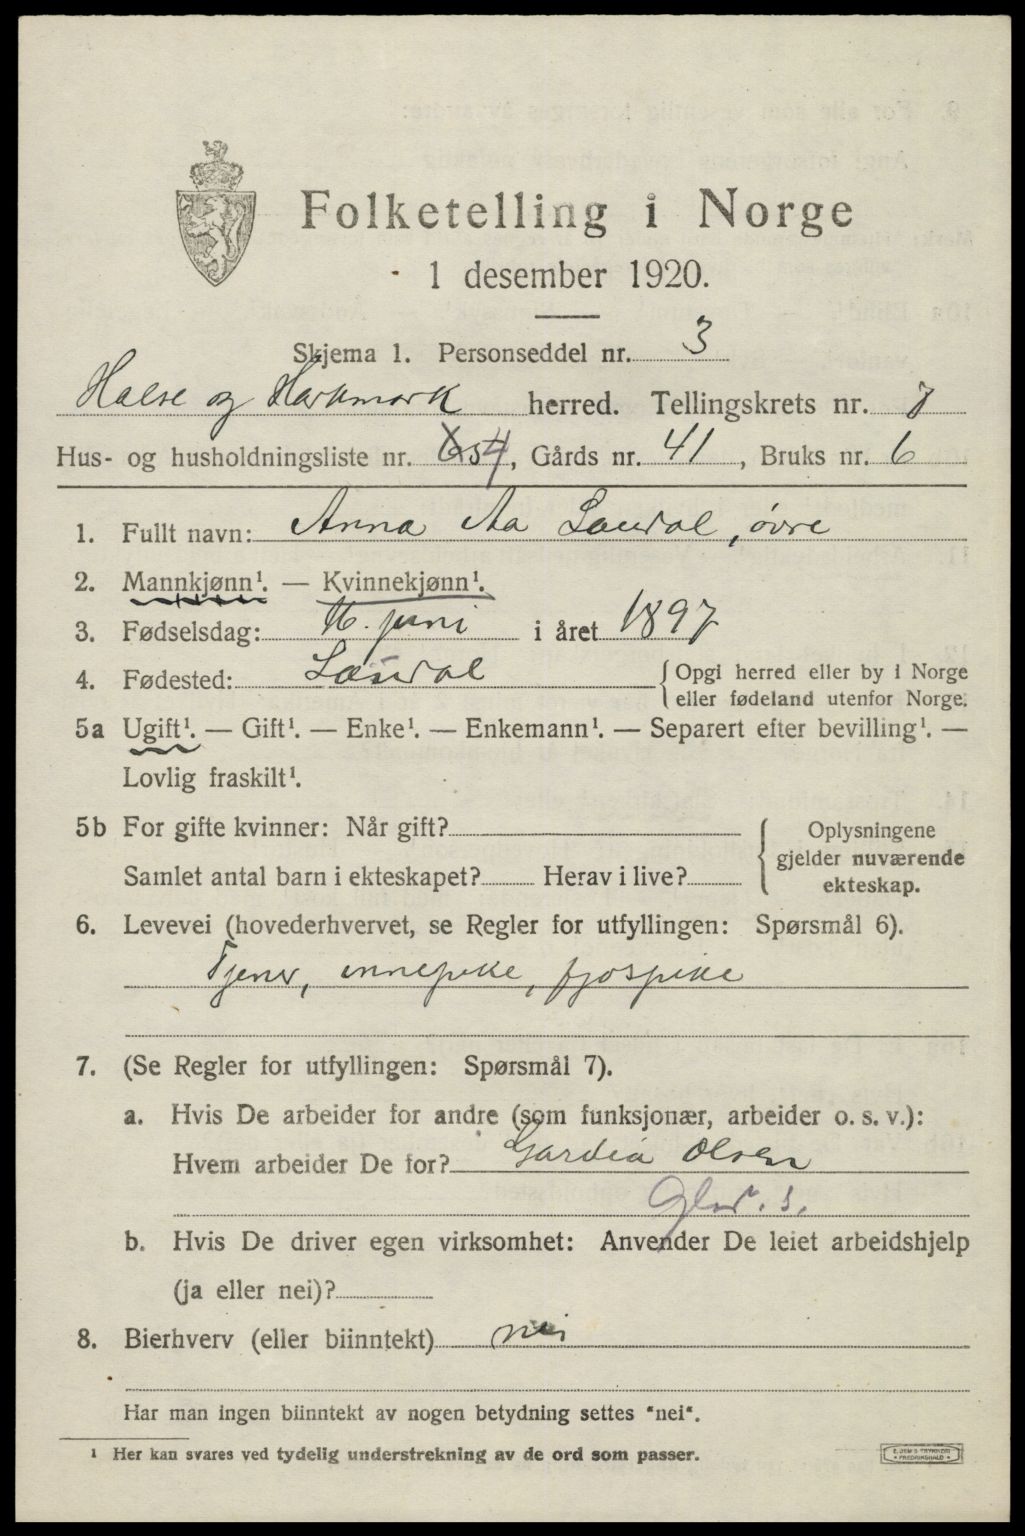 Folketelling i Norge
1 desember 1920.
Skjema 1. Personseddel nr. 3
Halse og Harkmark herred. Tellingskrets nr. 7
Hus- og husholdningsliste nr. 54, Gårds nr. 41, Bruks nr. 6
1. Fullt navn: Anna Aa Laudal, øvre
2. Mannkjønn¹. — Kvinnekjønn¹.
3. Fødselsdag: 16. juni i året 1897
4. Fødested: Laudal { Opgi herred eller by i Norge
eller fødeland utenfor Norge.
5a Ugift¹. — Gift¹. — Enke¹. — Enkemann¹. — Separert efter bevilling¹. —
Lovlig fraskilt¹.
5b For gifte kvinner: Når gift?
Samlet antal barn i ekteskapet? Herav i live?
{ Oplysningene
gjelder nuværende
ekteskap.
6. Levevei (hovederhvervet, se Regler for utfyllingen: Spørsmål 6).
Tjener, innepike, fjøspike
7. (Se Regler for utfyllingen: Spørsmål 7).
a. Hvis De arbeider for andre (som funksjonær, arbeider o. s. v.):
Hvem arbeider De for? Olsen
b. Hvis De driver egen virksomhet: Anvender De leiet arbeidshjelp
(ja eller nei)?
8. Bierhverv (eller biinntekt) nei
Har man ingen biinntekt av nogen betydning settes "nei".
¹ Her kan svares ved tydelig understrekning av de ord som passer.
E. SEM'S TRYKKERI
• FREDRIKSHALD •